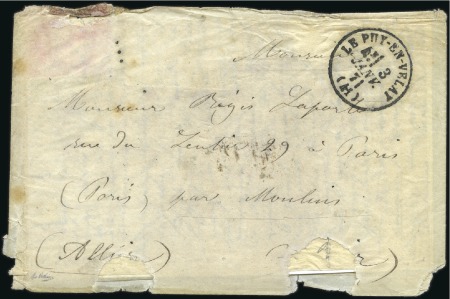 Monsieur
LE PUY-EN-VELAY
3
JANV.
71
Monsieur Régis Laporte
rue du Sentier 29 à Paris
(Paris) par Moulins
(Allier)